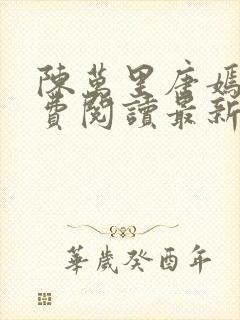 陳萬里唐嫣
費閱讀最新
華歲癸酉年